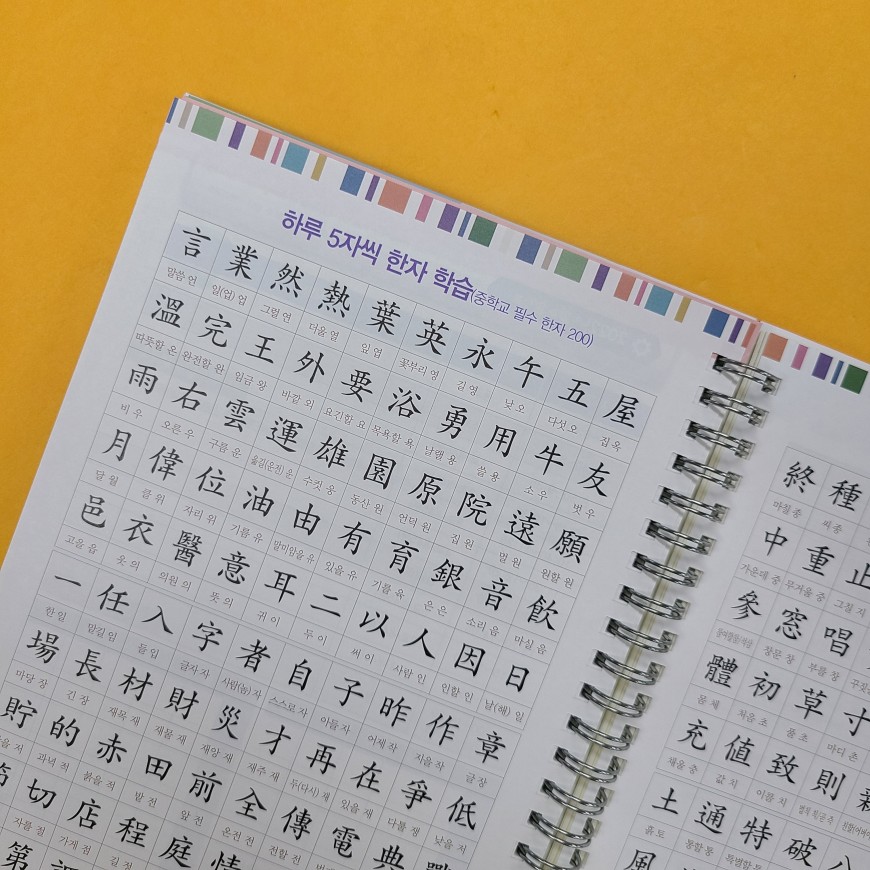 하루 5자씩 한자 학습(중학교 필수 한자 200)
言 業 然 熱 葉 英 永 午 五 屋
말씀 언 일(업) 업 그럴 연 더울 열 잎 엽 꽃부리 영 길 영 낮 오 다섯 오 집 옥
溫 完 王 外 要 浴 勇 用 牛 友
따뜻할 온 완전할 완 임금 왕 바깥 외 요긴할 요 목욕할 욕 날랠 용 쓸 용 소 우 벗 우
雨 右 雲 運 雄 園 原 院 遠 願
비 우 오른 우 구름 운 옮길(운전) 운 수컷 웅 동산 원 언덕 원 집 원 멀 원 원할 원
月 偉 位 油 由 有 育 銀 音 飮
달 월 클 위 자리 위 기름 유 말미암을 유 있을 유 기를 육 은 은 소리 음 마실 음
邑 衣 醫 意 耳 二 以 人 因 日
고을 읍 옷 의 의원 의 뜻 의 귀 이 두 이 써 이 사람 인 인할 인 날(해) 일
一 任 入 字 者 自 子 昨 作 章
한 일 맡길 임 들 입 글자 자 사람(놈) 자 스스로 자 아들 자 어제 작 지을 작 글 장
場 長 材 財 災 才 再 在 爭 低
마당 장 긴 장 재목 재 재물 재 재앙 재 재주 재 두(다시) 재 있을 재 다툴 쟁 낮을 저
貯 的 赤 田 前 全 傳 電 典
과녁 적 붉을 적 밭 전 앞 전 온전 전 전할 전
切 店 程 庭 情
자를 절 가게 점 길 정
第
終 種
마칠 종 씨 종
中 重 止
가운데 중 무거울 중 그칠 지
參 窓 唱
창문 창 부를 창
體 初 草 寸
몸 체 처음 초 풀 초 마디 촌
充 値 致 則
채울 충 값 치 이를 치
土 通 特 破 八
흙 토 통할 통 특별할 특
風